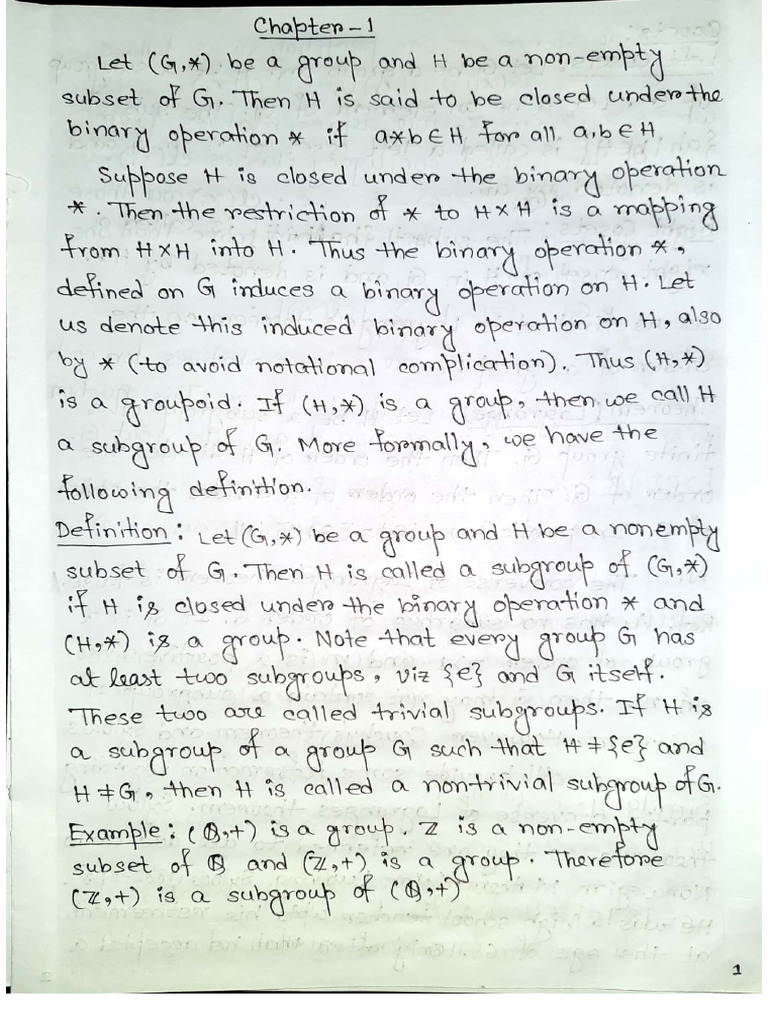 Chapter-1
Let (G,*) be a group and H be a non-empty
subset of G. Then H is said to be closed under the
binary operation * if a*b∈H for all a,b∈H
Suppose H is closed under the binary operation
*. Then the restriction of * to H×H is a mapping
from H×H into H. Thus the binary operation *,
defined on G induces a binary operation on H. Let
us denote this induced binary operation on H, also
by * (to avoid notational complication). Thus (H,*)
is a groupoid. If (H,*) is a group, then we call H
a subgroup of G. More formally, we have the
following definition.
Definition: Let (G,*) be a group and H be a nonempty
subset of G. Then H is called a subgroup of (G,*)
if H is closed under the binary operation * and
(H,*) is a group. Note that every group G has
at least two subgroups, viz {e} and G itself.
These two are called trivial subgroups. If H is
a subgroup of a group G such that H≠{e} and
H≠G, then H is called a nontrivial subgroup of G.
Example: (ℚ,+) is a group. ℤ is a non-empty
subset of ℚ and (ℤ,+) is a group. Therefore
(ℤ,+) is a subgroup of (ℚ,+)
1